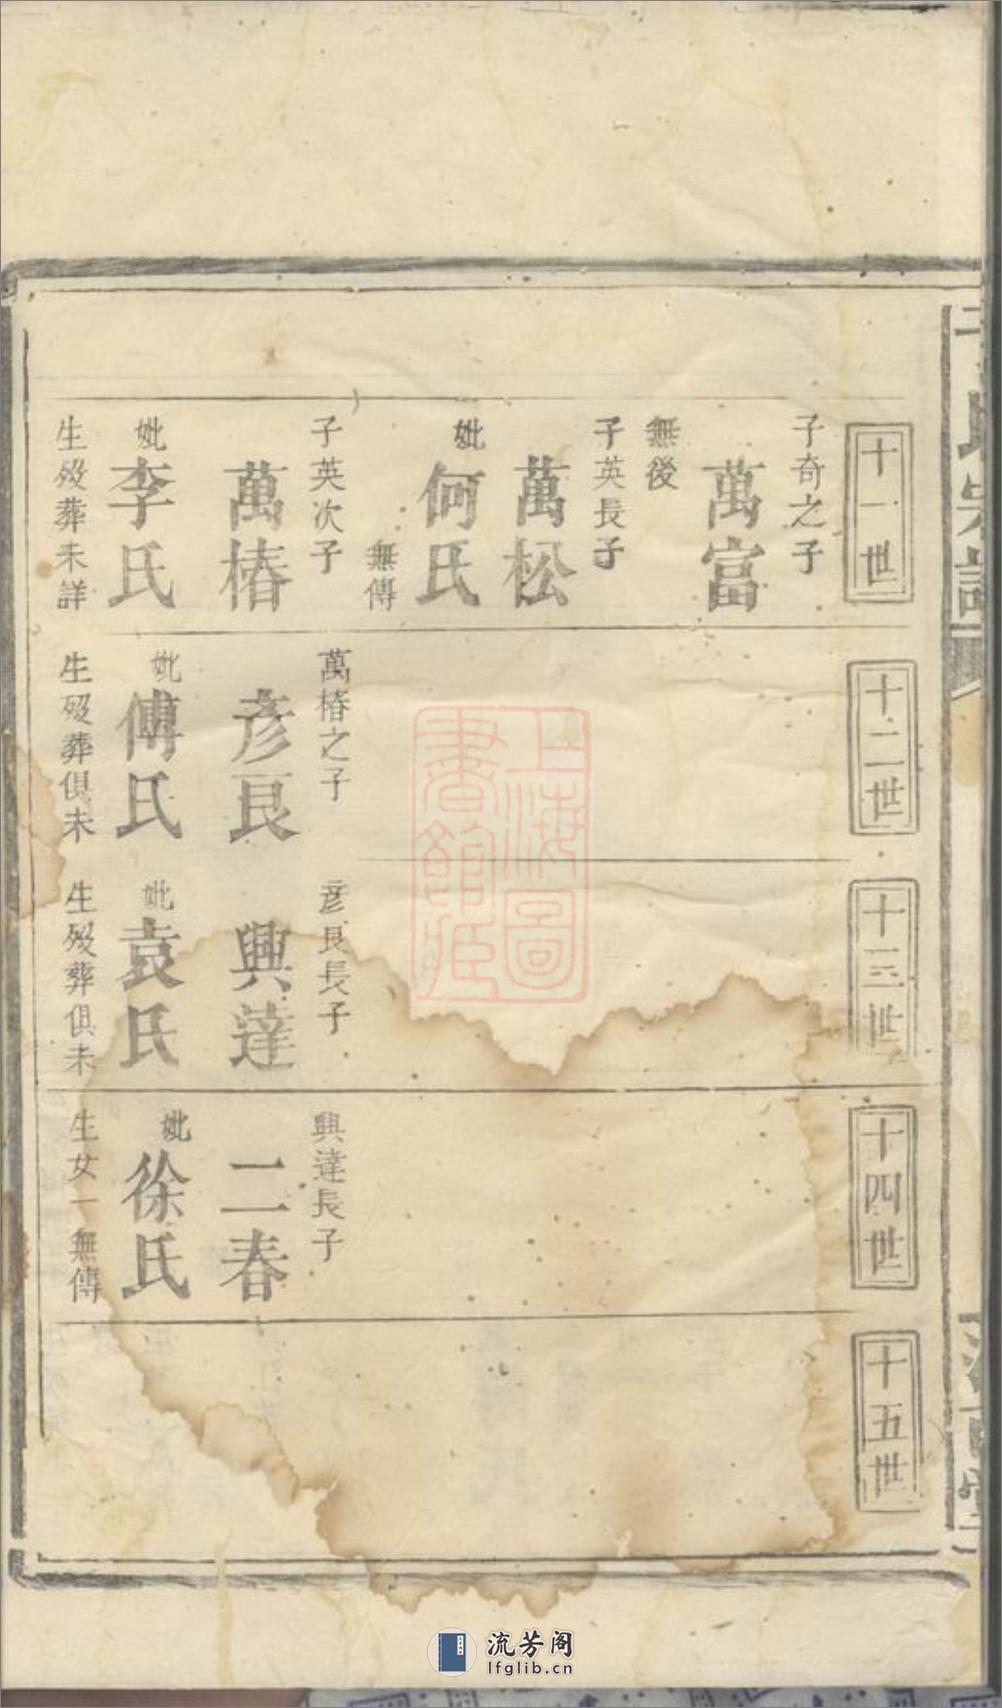 十一世
子奇之子
萬富
無後
子英長子
萬松
妣何氏
無傳
子英次子
萬椿
妣李氏
生歿葬未詳
十二世
萬椿之子
彦良
妣傅氏
生歿葬俱未
十三世
彦良長子
興達
妣袁氏
生歿葬俱未
十四世
興達長子
二春
妣徐氏
生女一無傳
十五世
上海圖
書館藏
流芳阁
lfglib.cn